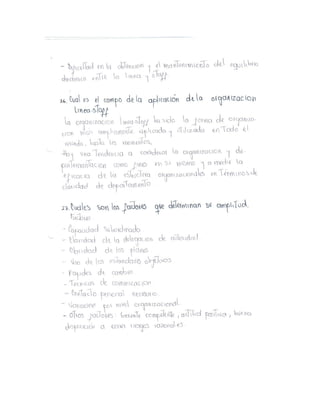 - Dificultad en la obtencion y el mantenimiento del equilibrio
dinámico entre la linea y staff
26. Cual es el campo de la aplicación de la organizacion
Linea-staff
La organizacion linea staff ha sido la forma de organiza-
cion más ampliamente aplicada y utilizada en Todo el
mundo, hasta los momentos.
Hoy una Tendencia a considerar la organizacion y de-
partamentalizacion como fines en si mismo y a medir la
eficacia de la estructura organizacionales en Términos de
claridad de departamento
27. Cuales son los factores que determinan su amplitud.
Factores
- Capacidad Subordinado
- Claridad de la delegación de autoridad
- Claridad de los planes
- Uso de los estandares objetivos
- Rapidez de cambio
- Tecnicas de comunicacion
- Contacto personal necesario
- Variacion por nivel organizacional.
- Otros factores: Gerente competente, actitud positiva, buena
disposición a correr riesgos razonables.